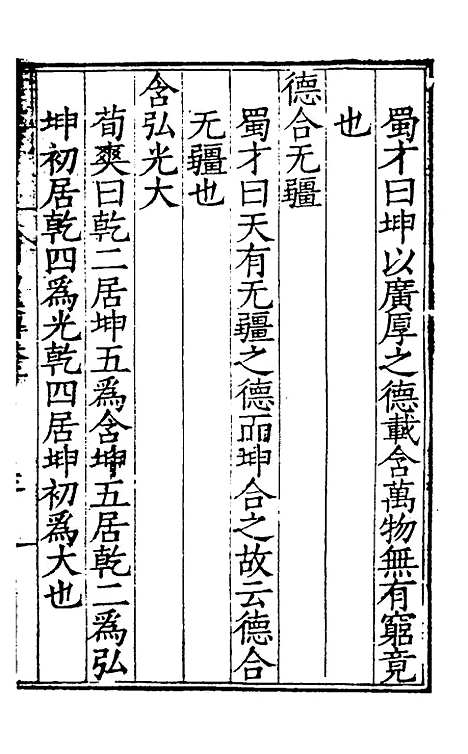 蜀才曰坤以廣厚之德載含萬物無有窮竟
也
德合无疆
蜀才曰天有无疆之德而坤合之故云德合
无疆也
含弘光大
荀爽曰乾二居坤五爲含坤五居乾二爲弘
坤初居乾四爲光乾四居坤初爲大也